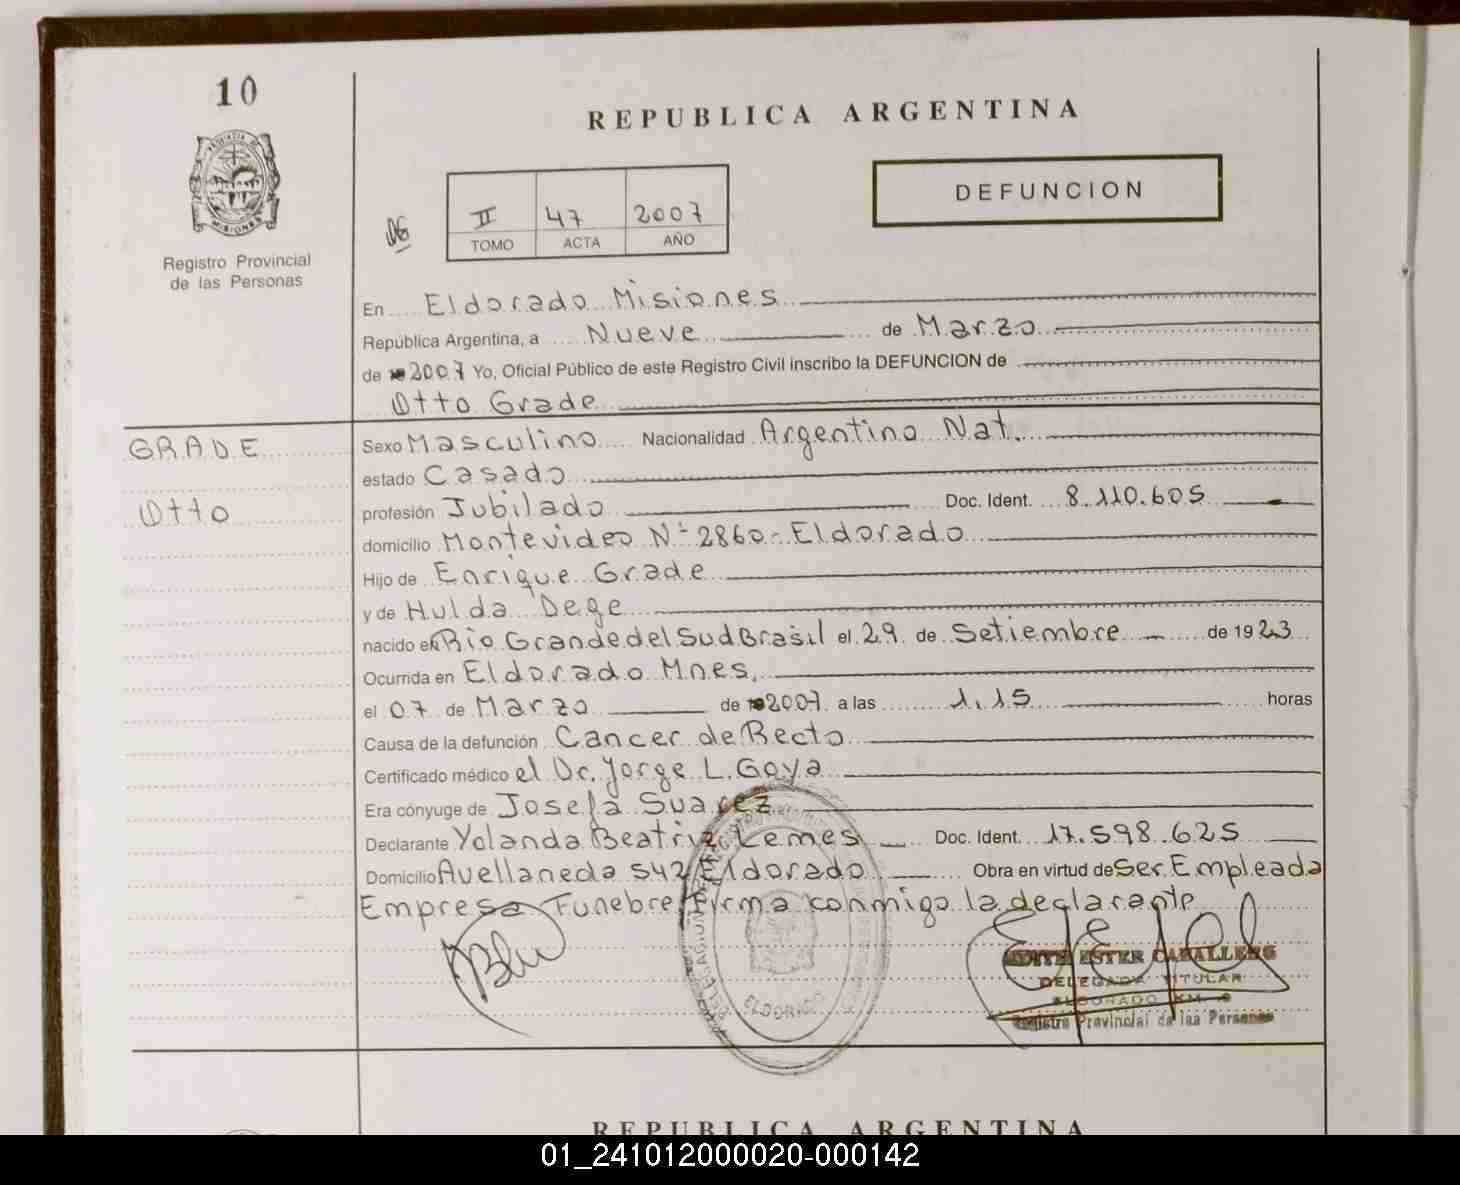 10
REPUBLICA ARGENTINA
DEFUNCION
II 47 2007
TOMO ACTA AÑO
PROVINCIA DE
MISIONES
Registro Provincial
de las Personas
En Eldorado Misiones
República Argentina, a Nueve de Marzo
de 2007 Yo, Oficial Público de este Registro Civil inscribo la DEFUNCION de
Otto Grade
GRADE
Otto
Sexo Masculino Nacionalidad Argentino Nat.
estado Casado
profesión Jubilado Doc. Ident. 8.110.605
domicilio Montevideo Nº 2860 - Eldorado
Hijo de Enrique Grade
y de Hulda Dege
nacido en Rio Grande del Sud Brasil el 29 de Setiembre de 1923
Ocurrida en Eldorado Mnes.
el 07 de Marzo de 2007 a las 1.15 horas
Causa de la defunción Cancer de Recto
Certificado médico el Dr. Jorge L. Goya
Era cónyuge de Josefa Suarez
Declarante Yolanda Beatriz Lemes Doc. Ident. 17.598.625
Domicilio Avellaneda 542 Eldorado Obra en virtud de Ser Empleada
Empresa Funebre Firma conmigo la declarante
ELDORADO
EDITH ESTER CABALLERO
DELEGADA TITULAR
ELDORADO KM. 9
Registro Provincial de las Personas
REPUBLICA ARGENTINA
01_241012000020-000142